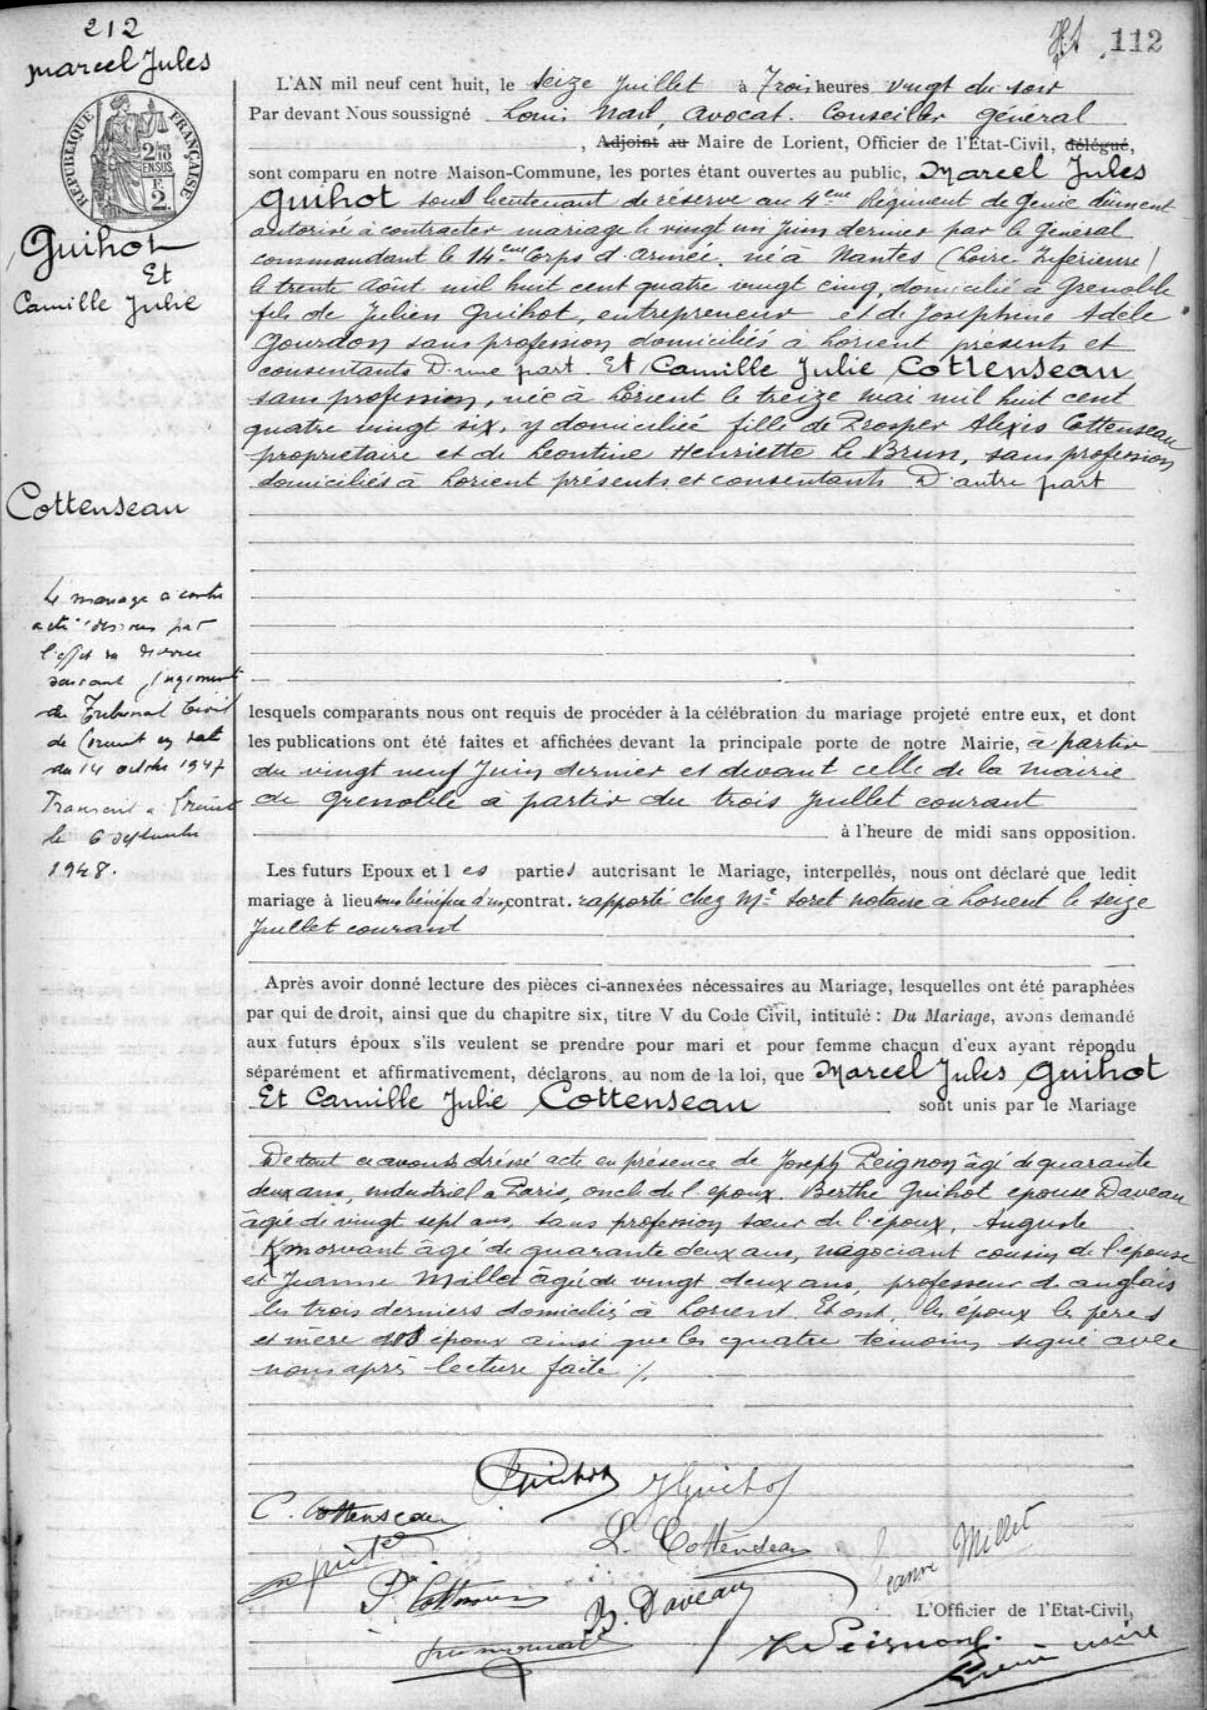 212
112
Marcel Jules
RÉPUBLIQUE FRANÇAISE
2/10
EN SUS
2
Guihot
Et
Camille Julie
Cottenseau
Le mariage ci contre
a été dissous par
l'effet du divorce
suivant jugement
du Tribunal Civil
de Lorient en date
du 14 octobre 1947
Transcrit à Lorient
le 6 septembre
1948.
L'AN mil neuf cent huit, le seize Juillet à Trois heures vingt du soir
Par devant Nous soussigné Louis Nail, avocat. Conseiller général
, Adjoint au Maire de Lorient, Officier de l'Etat-Civil, délégué,
sont comparu en notre Maison-Commune, les portes étant ouvertes au public, Marcel Jules
Guihot sous lieutenant de réserve au 4eme Régiment de Génie dûment
autorisé à contracter mariage le vingt un Juin dernier par le Général
commandant le 14eme Corps d'armée. né à Nantes (Loire-Inférieure)
le trente Août mil huit cent quatre vingt cinq, domicilié à Grenoble
fils de Julien Guihot, entrepreneur et de Joséphine Adèle
Gourdon sans profession domiciliés à Lorient présents et
consentants D'une part. Et Camille Julie Cottenseau
sans profession, née à Lorient le treize mai mil huit cent
quatre vingt six, y domiciliée fille de Prosper Alexis Cottenseau
propriétaire et de Léontine Henriette Le Brun, sans profession
domiciliés à Lorient présents et consentants D'autre part
lesquels comparants nous ont requis de procéder à la célébration du mariage projeté entre eux, et dont
les publications ont été faites et affichées devant la principale porte de notre Mairie, à partir
du vingt neuf Juin dernier et devant celle de la mairie
de Grenoble à partir du trois Juillet courant
à l'heure de midi sans opposition.
Les futurs Epoux et les parties autorisant le Mariage, interpellés, nous ont déclaré que ledit
mariage à lieu sous bénéfice d'un contrat. rapporté chez Me Soret notaire à Lorient le seize
Juillet courant
Après avoir donné lecture des pièces ci-annexées nécessaires au Mariage, lesquelles ont été paraphées
par qui de droit, ainsi que du chapitre six, titre V du Code Civil, intitulé : Du Mariage, avons demandé
aux futurs époux s'ils veulent se prendre pour mari et pour femme chacun d'eux ayant répondu
séparément et affirmativement, déclarons, au nom de la loi, que Marcel Jules Guihot
Et Camille Julie Cottenseau sont unis par le Mariage
De tout ce avons dressé acte en présence de Joseph Peignon âgé de quarante
deux ans, industriel à Paris, oncle de l'époux. Berthe Guihot épouse Daveau
âgée de vingt sept ans, sans profession sœur de l'époux, Auguste
Kmorvant âgé de quarante deux ans, négociant cousin de l'épouse
et Jeanne Millet âgée de vingt deux ans, professeur d'anglais
les trois derniers domiciliés à Lorient. Et ont, les époux les pères
et mère des époux ainsi que les quatre témoins signé avec
nous après lecture faite ./.
Guihot
JGuihot
C. Cottenseau
L. Cottenseau
Jeanne Millet
P. Cottenseau
B. Daveau
L'Officier de l'Etat-Civil,
Peignon